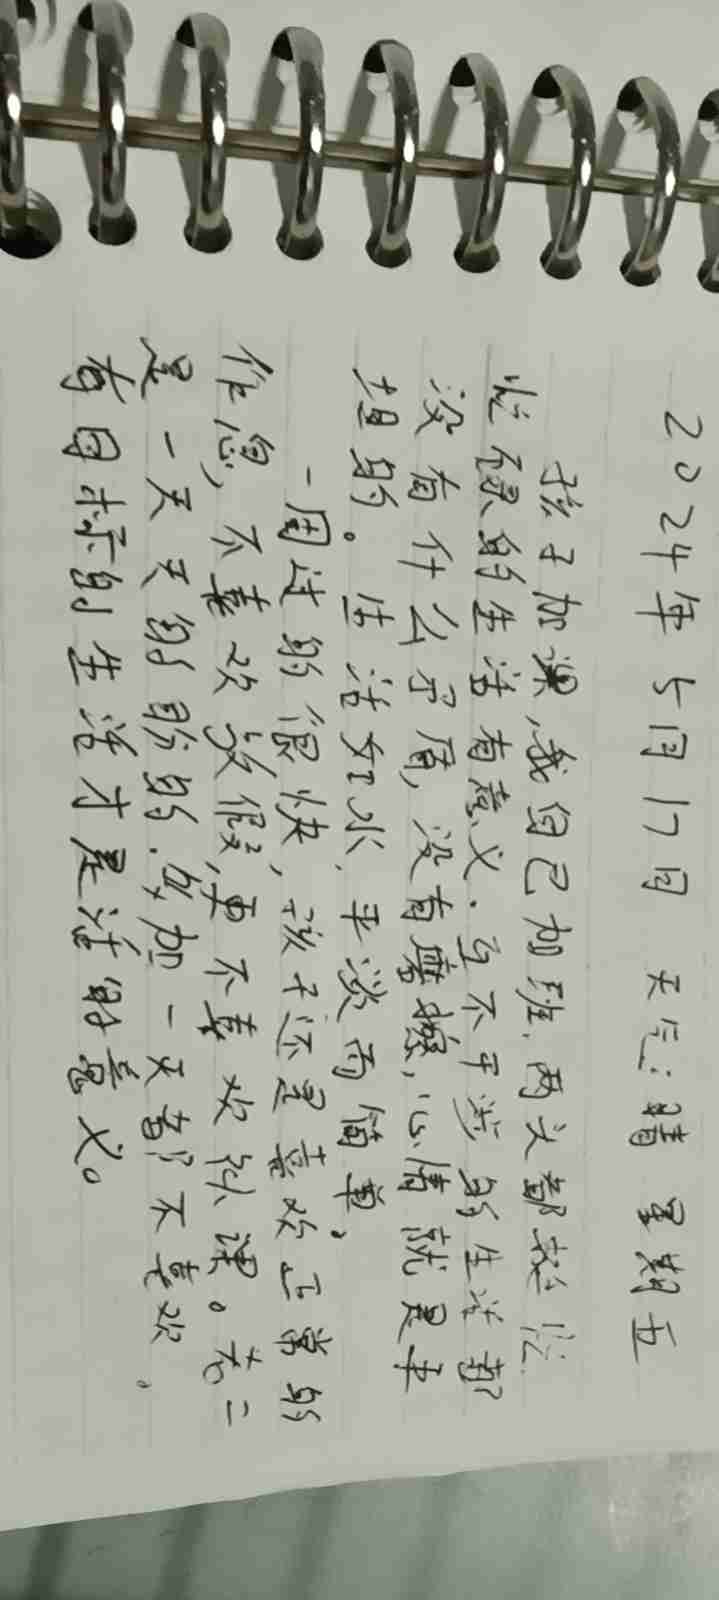 2024年5月17日 天气:晴 星期五
孩子加课,我自己加班,两头都挺忙.
忙碌的生活有意义.互不干涉的生活都
没有什么矛盾,没有磨擦,心情就是平
坦的。生活如水,平淡而简单,
一周过的很快,孩子还是喜欢正常的
作息,不喜欢放假,更不喜欢补课。高二
是一天天的盼的.多加一天都不喜欢.
有目标的生活才是活的意义。